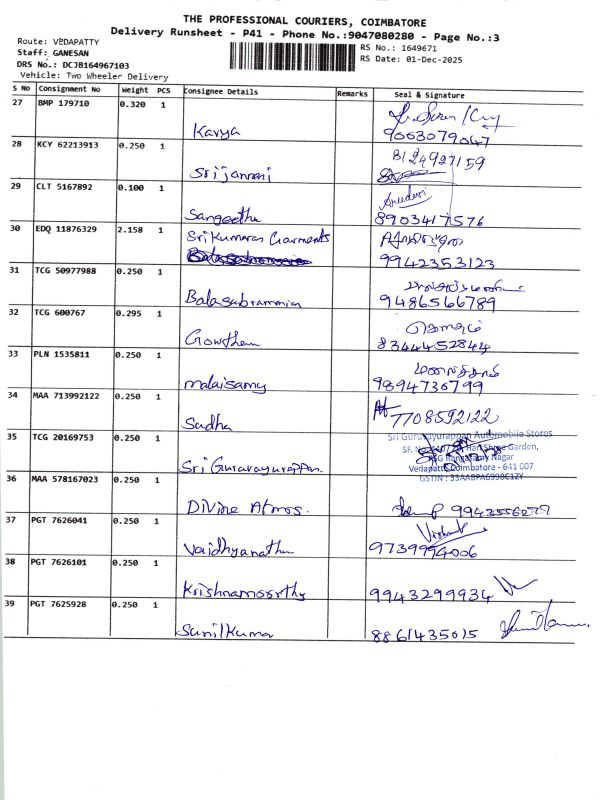 THE PROFESSIONAL COURIERS, COIMBATORE
Delivery Runsheet - P41 - Phone No.:9047080280 - Page No.:3
Route: VEDAPATTY
RS No.: 1649671
Staff: GANESAN
RS Date: 01-Dec-2025
DRS No.: DCJB164967103
Vehicle: Two Wheeler Delivery
S No Consignment No Weight PCS Consignee Details Remarks Seal & Signature
27 BMP 179710 0.320 1
Kavya 9003079047
28 KCY 62213913 0.250 1 8124927159
Srijanani
29 CLT 5167892 0.100 1 Sreedevi
Sangeetha 8903417576
30 EDQ 11876329 2.158 1 Sri Kumaran Garments
9942353123
31 TCG 50977988 0.250 1
Balasubramnian 9486566789
32 TCG 600767 0.295 1 கௌதம்
Gowtham 8344452844
33 PLN 1535811 0.250 1
malaisamy 9894736799
34 MAA 713992122 0.250 1
Sudha 7708592122
35 TCG 20169753 0.250 1 Sri Guruvayurappan Automobile Stores
Sri Guruvayurappan Garden,
Nagar
Vedapatti, Coimbatore - 641 007
GSTIN :
36 MAA 578167023 0.250 1
Divine Atmos. 9943556279
37 PGT 7626041 0.250 1
Vaidhyanathan 9739994006
38 PGT 7626101 0.250 1
Krishnamoorthy 9943299934
39 PGT 7625928 0.250 1
Sunilkumar 8861435015